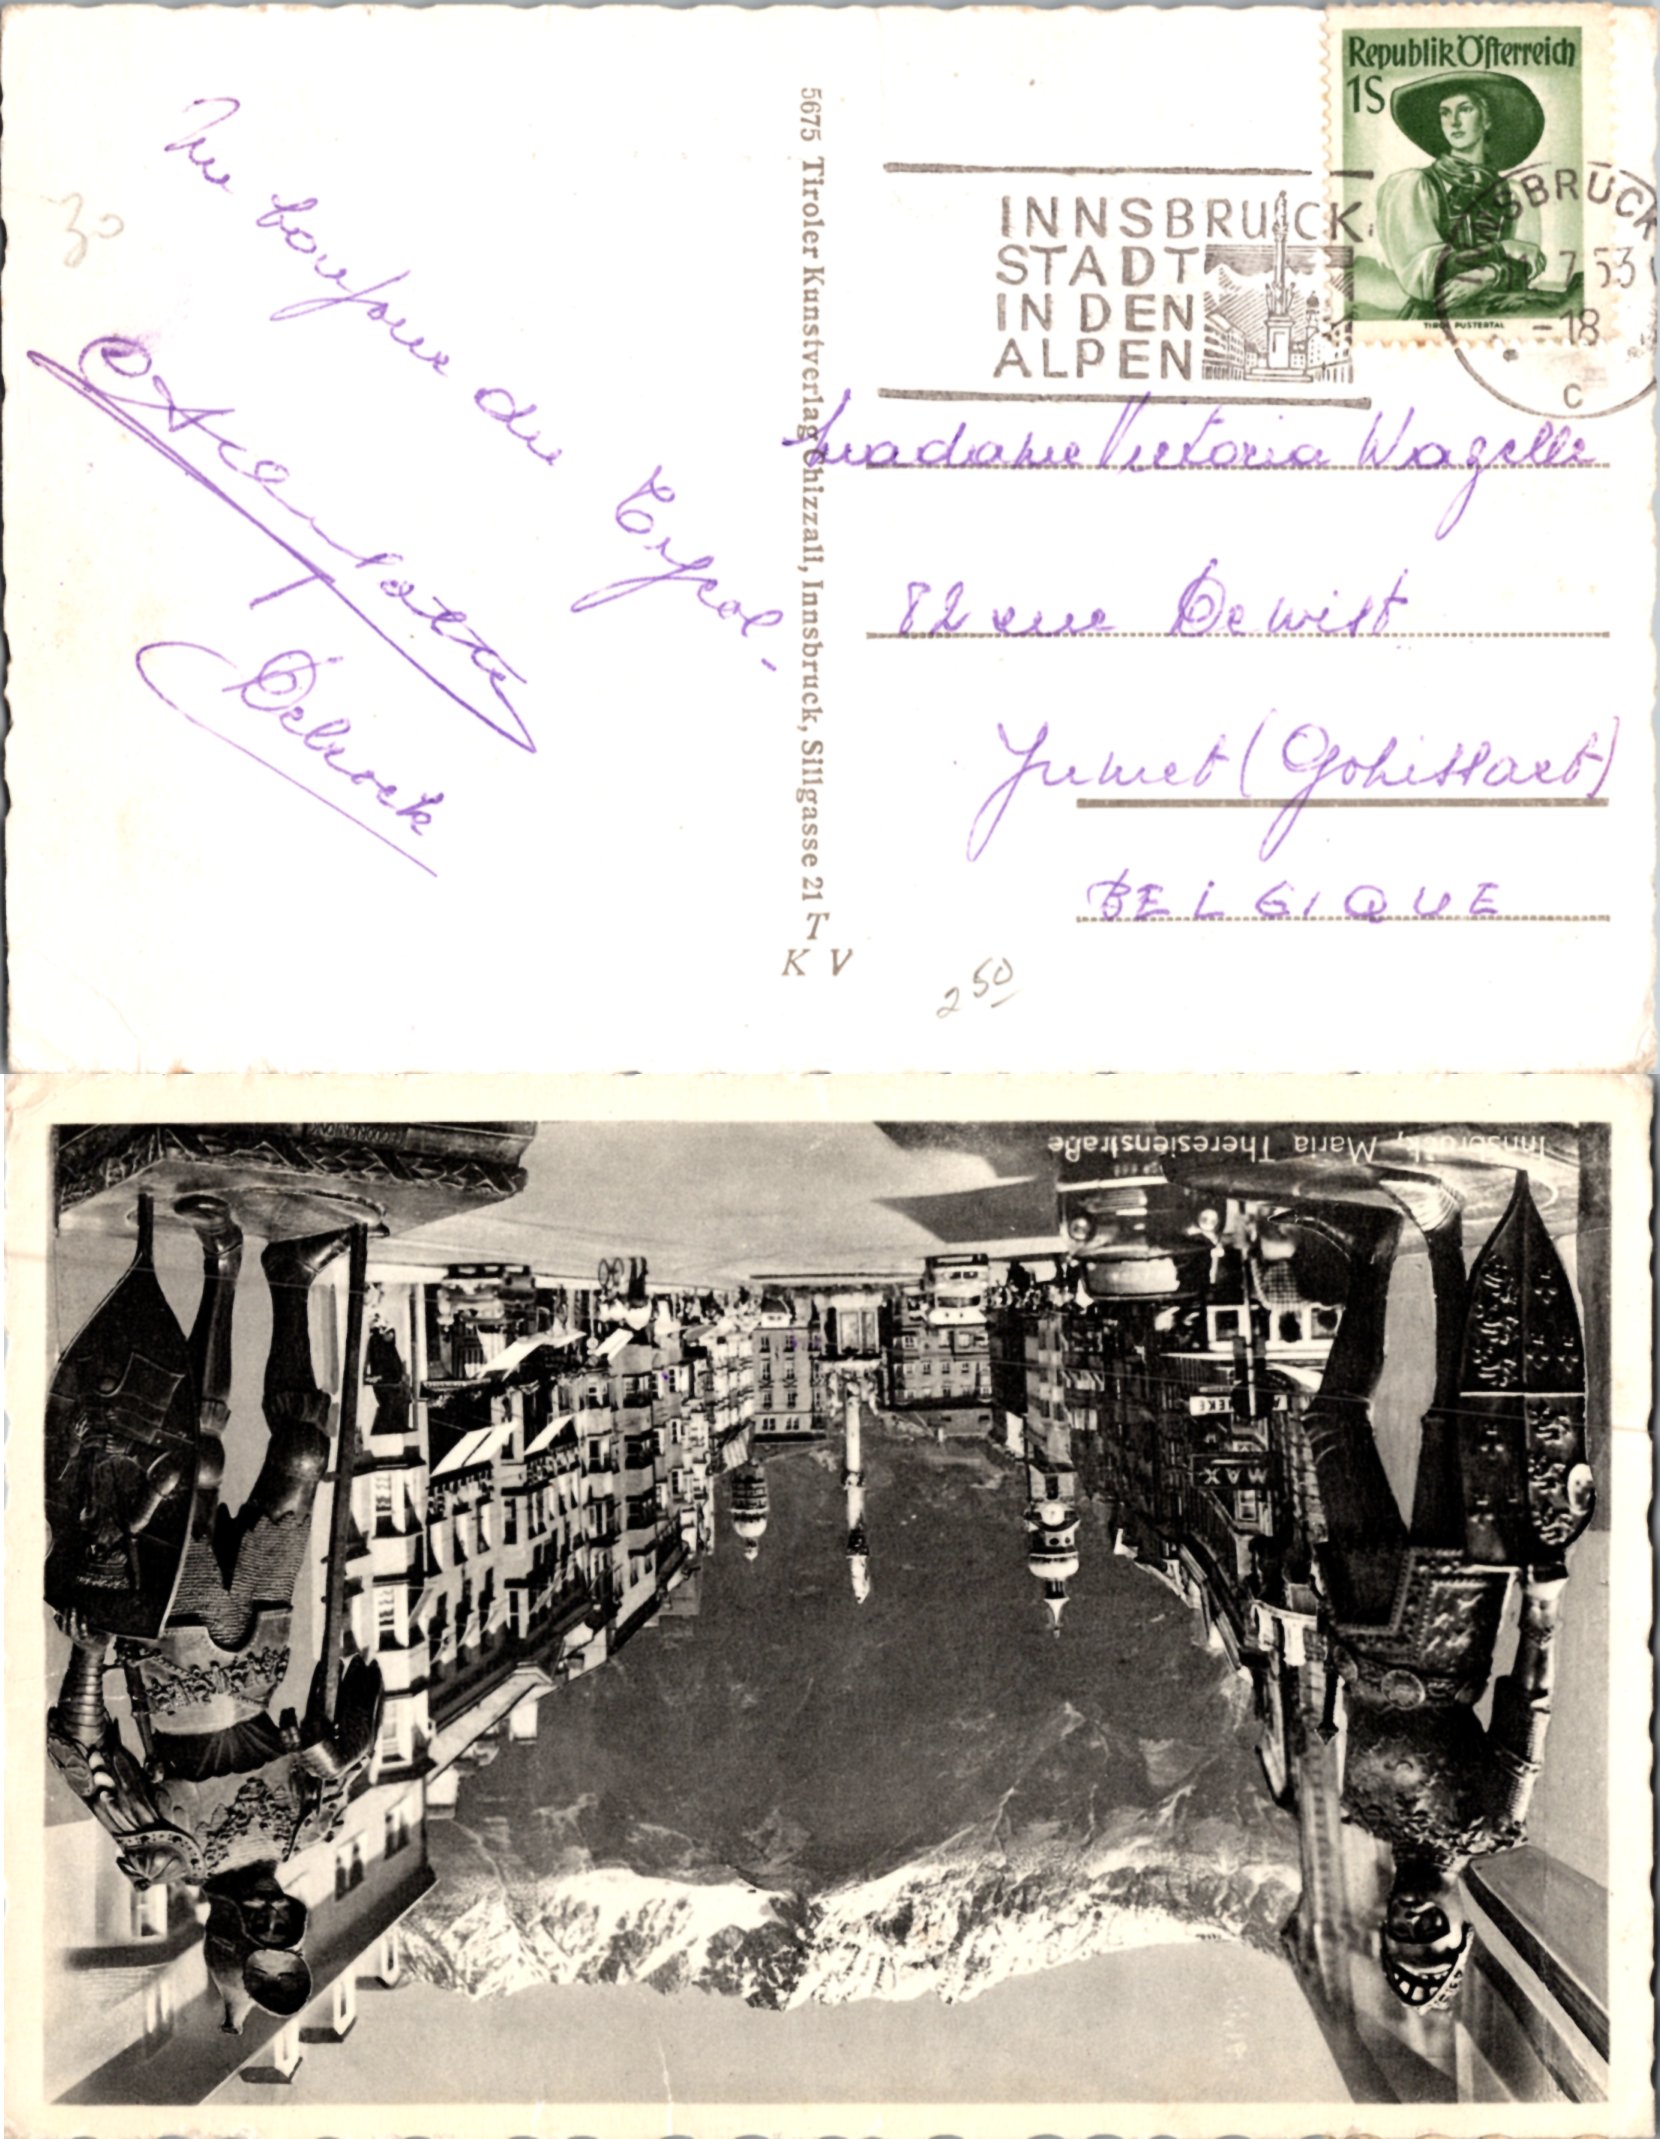 Republik Österreich
1S
TIROL PUSTERTAL
INNSBRUCK
7 53
-18
C
INNSBRUCK,
STADT
IN DEN
ALPEN
30
Un bonjour du Tyrol.
Delrock
5675 Tiroler Kunstverlag Chizzali, Innsbruck, Sillgasse 21
T
K V
Madame Victoria Wagelle
82 rue Dewist
Jumet (Gohissart)
BELGIQUE
2 50
Innsbruck, Maria Theresienstraße
MAX